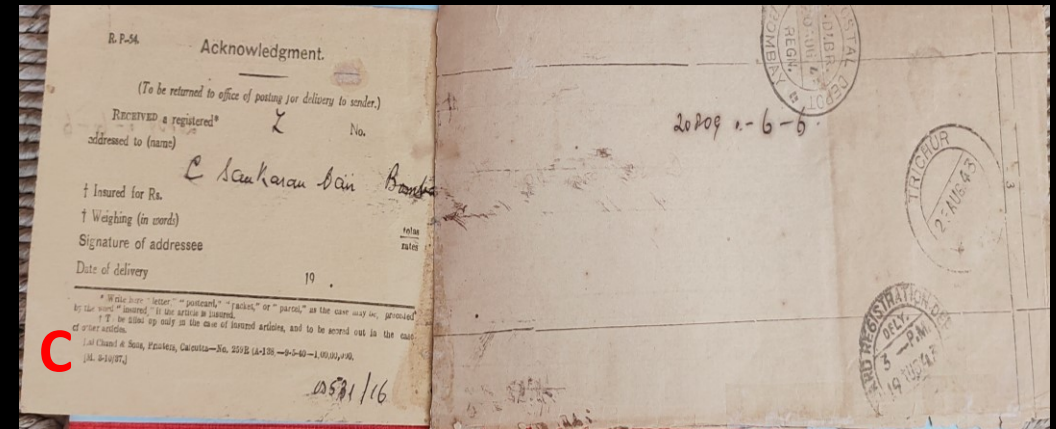 R. P-54.
Acknowledgment.
(To be returned to office of posting for delivery to sender.)
RECEIVED a registered* L No.
addressed to (name)
C Sankaran Nair Bomba
† Insured for Rs.
† Weighing (in words)
tolas
rates
Signature of addressee
Date of delivery 19 .
* Write here "letter," "postcard," "packet," or "parcel," as the case may be, preceded
by the word "insured," if the article is insured.
† To be filled up only in the case of insured articles, and to be scored out in the case
of other articles.
Lal Chand & Sons, Printers, Calcutta—No. 259E (A-138,—9-5-40—1,00,00,000.
[M. 5-10/37.]
C
POSTAL DEPOT
REGN.
BOMBAY
20809 .-6-6.
TRICHUR
AUG 43
REGISTRATION
DELY.
3 —P.M.
19 AUG 43